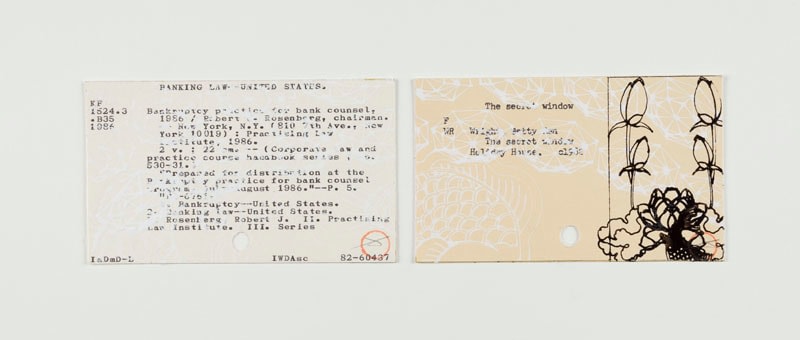 BANKING LAW--UNITED STATES.
KF
1524.3 Bankruptcy practice for bank counsel,
.B35 1986 / Robert J. Rosenberg, chairman.
1986 New York, N.Y. (810 7th Ave., New
York 10019) : Practising Law
Institute, 1986.
2 v. ; 22 cm. -- (Corporate law and
practice course handbook series ;
530-31.)
"Prepared for distribution at the
Bankruptcy practice for bank counsel
program, August 1986."--P. 5.
Bankruptcy--United States.
2. Banking law--United States.
Rosenberg, Robert J. II. Practising
Law Institute. III. Series
InDmD-L IWDAsc 82-60437
The secret window
F
WR Wright Betty Ren
The secret window
Holiday House, c1982